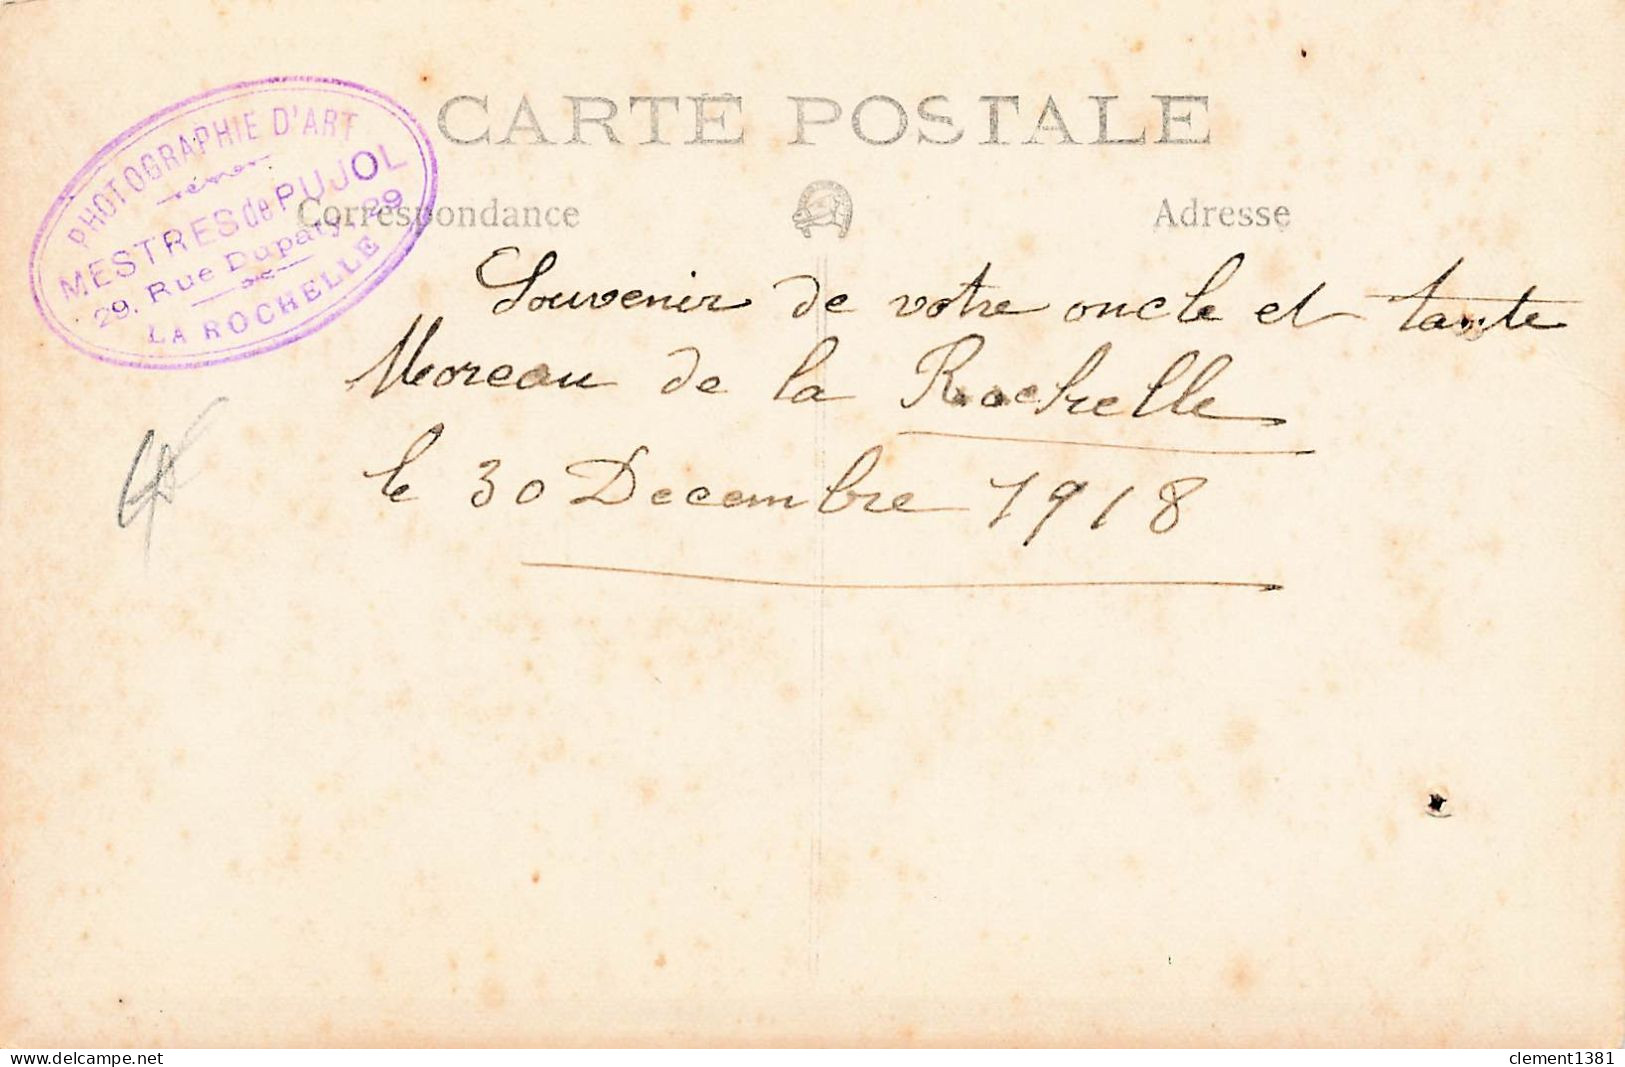 CARTE POSTALE
PHOTOGRAPHIE D'ART
MESTRES de PUJOL
29, Rue Dupaty, 29
LA ROCHELLE
Correspondance
Adresse
Souvenir de votre oncle et tante
Moreau de la Rochelle
le 30 Decembre 1918
delcampe.net
clement1381